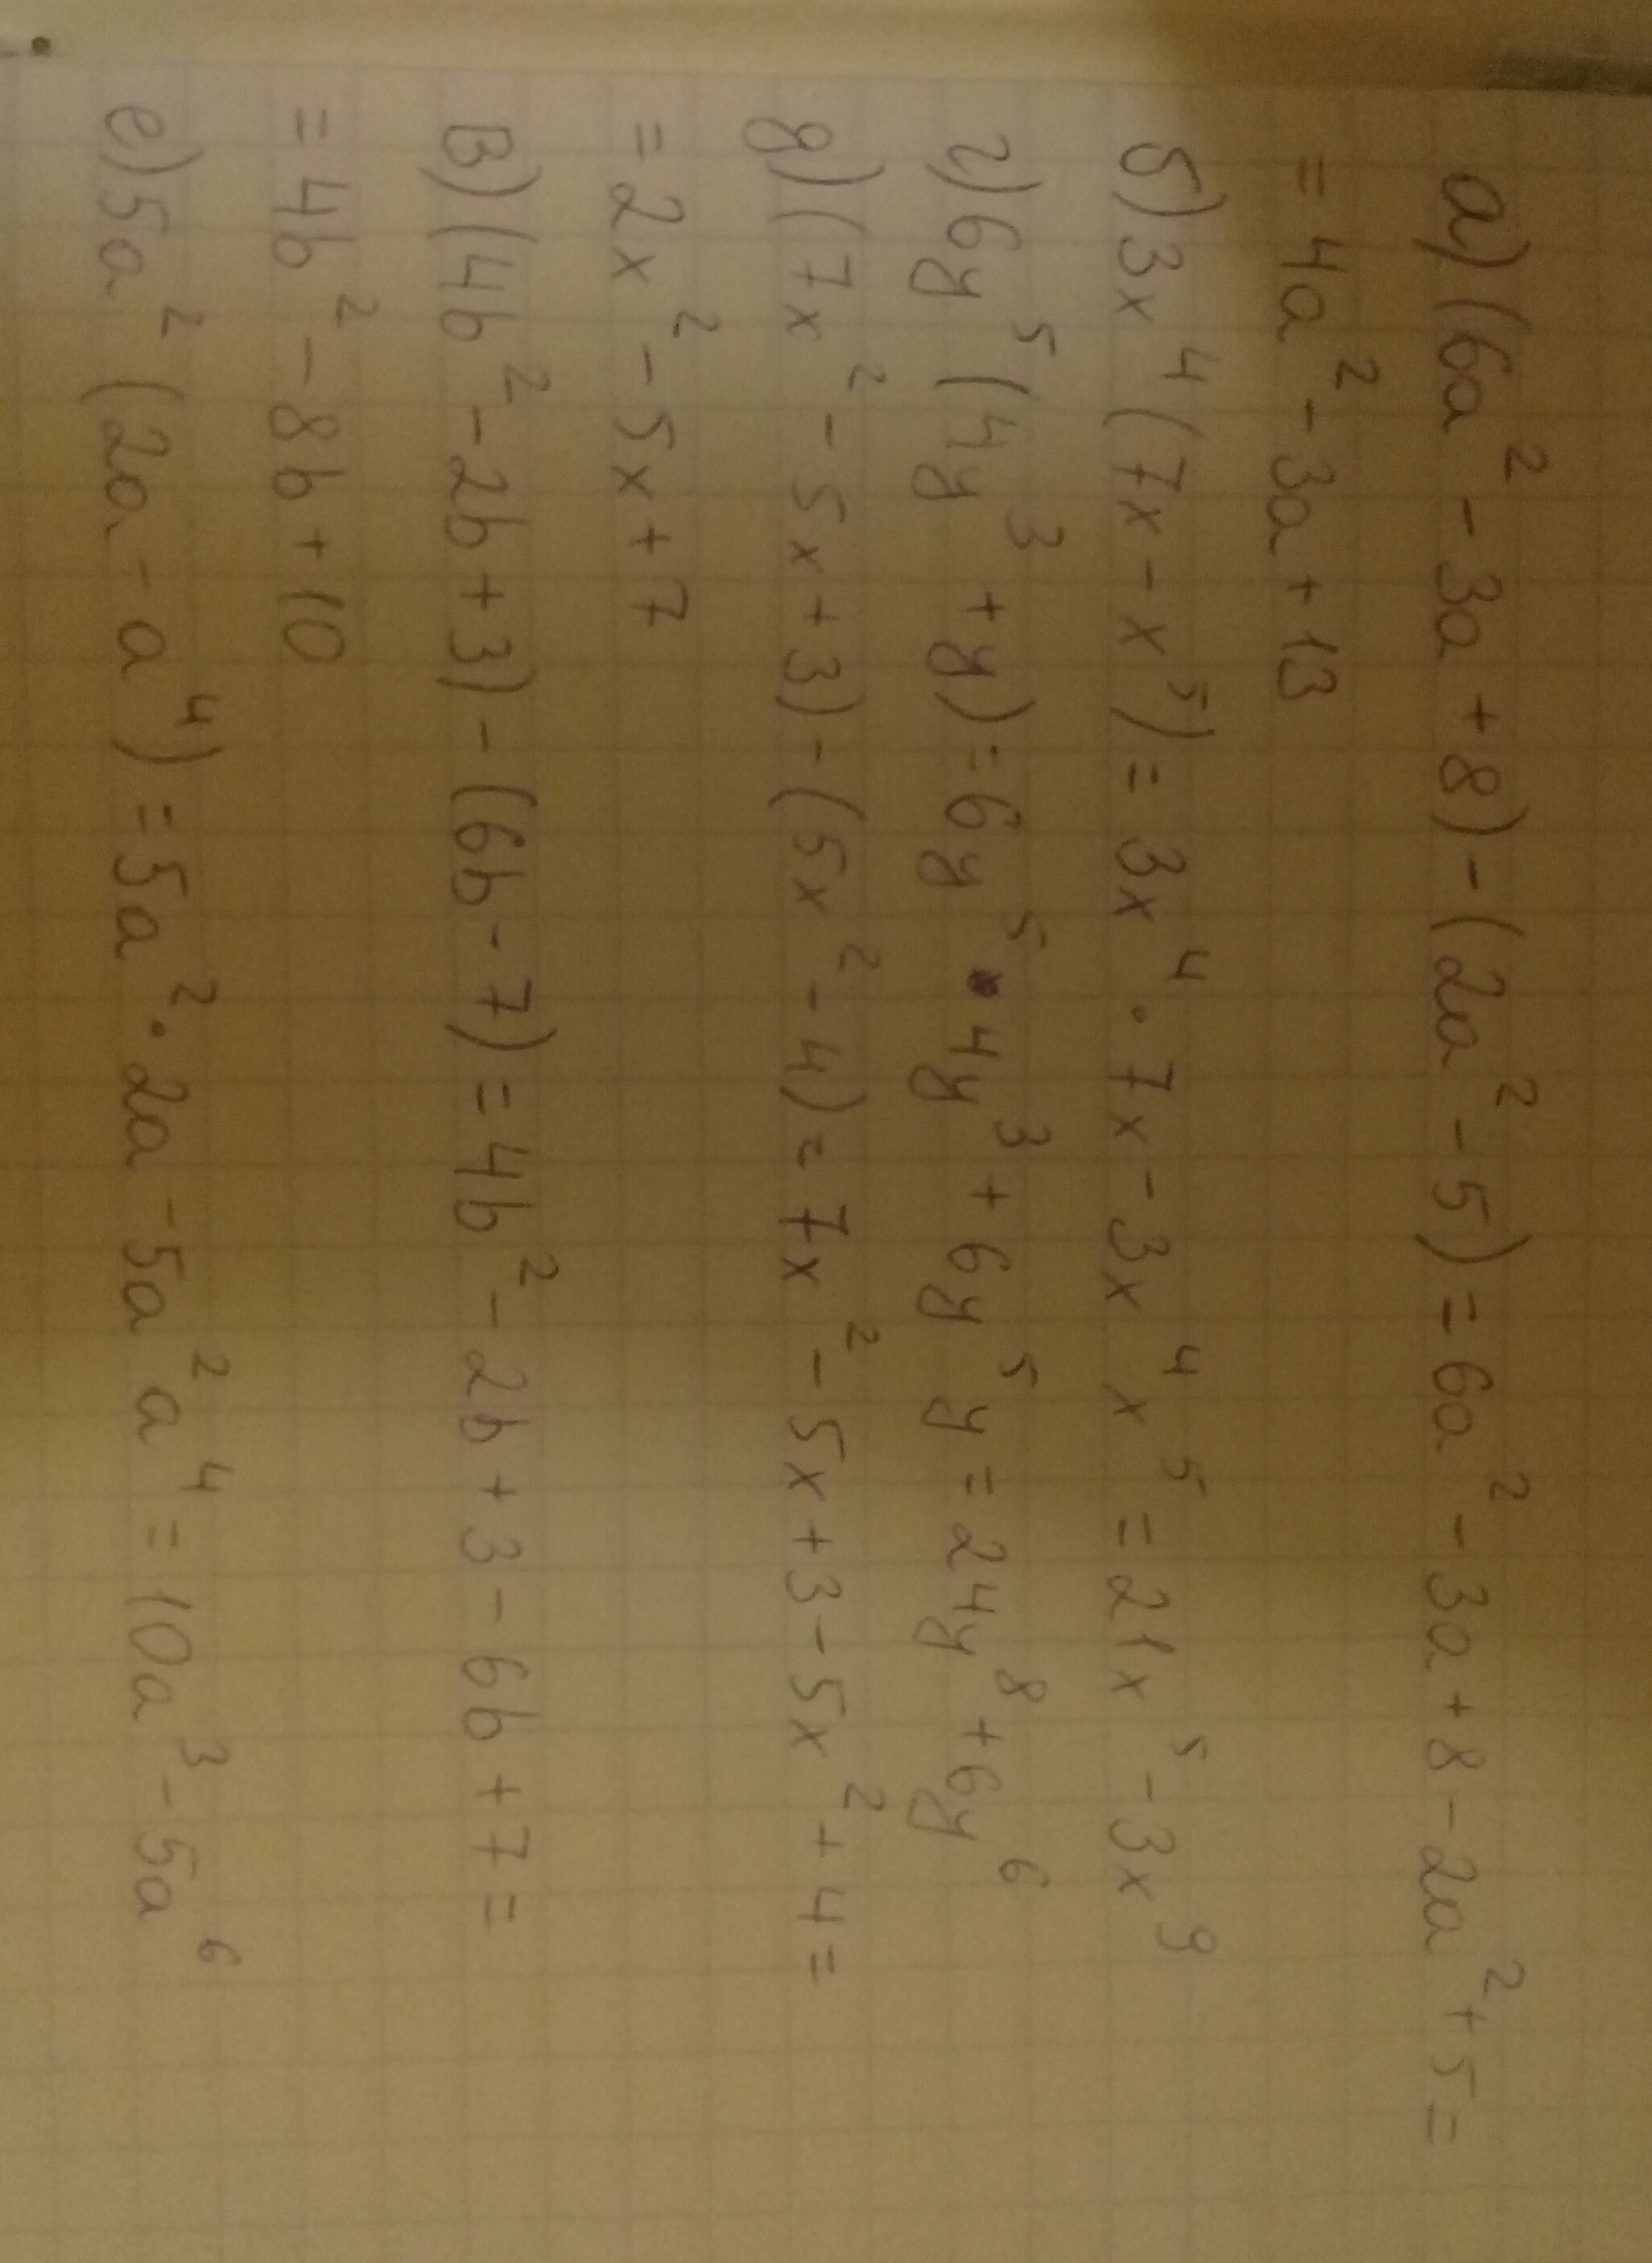 а) (6a² - 3a + 8) - (2a² - 5) = 6a² - 3a + 8 - 2a² + 5 =
= 4a² - 3a + 13
б) 3x⁴ (7x - x⁵) = 3x⁴ · 7x - 3x⁴ x⁵ = 21x⁵ - 3x⁹
г) 6y⁵ (4y³ + y) = 6y⁵ · 4y³ + 6y⁵ y = 24y⁸ + 6y⁶
д) (7x² - 5x + 3) - (5x² - 4) = 7x² - 5x + 3 - 5x² + 4 =
= 2x² - 5x + 7
В) (4b² - 2b + 3) - (6b - 7) = 4b² - 2b + 3 - 6b + 7 =
= 4b² - 8b + 10
е) 5a² (2a - a⁴) = 5a² · 2a - 5a² a⁴ = 10a³ - 5a⁶